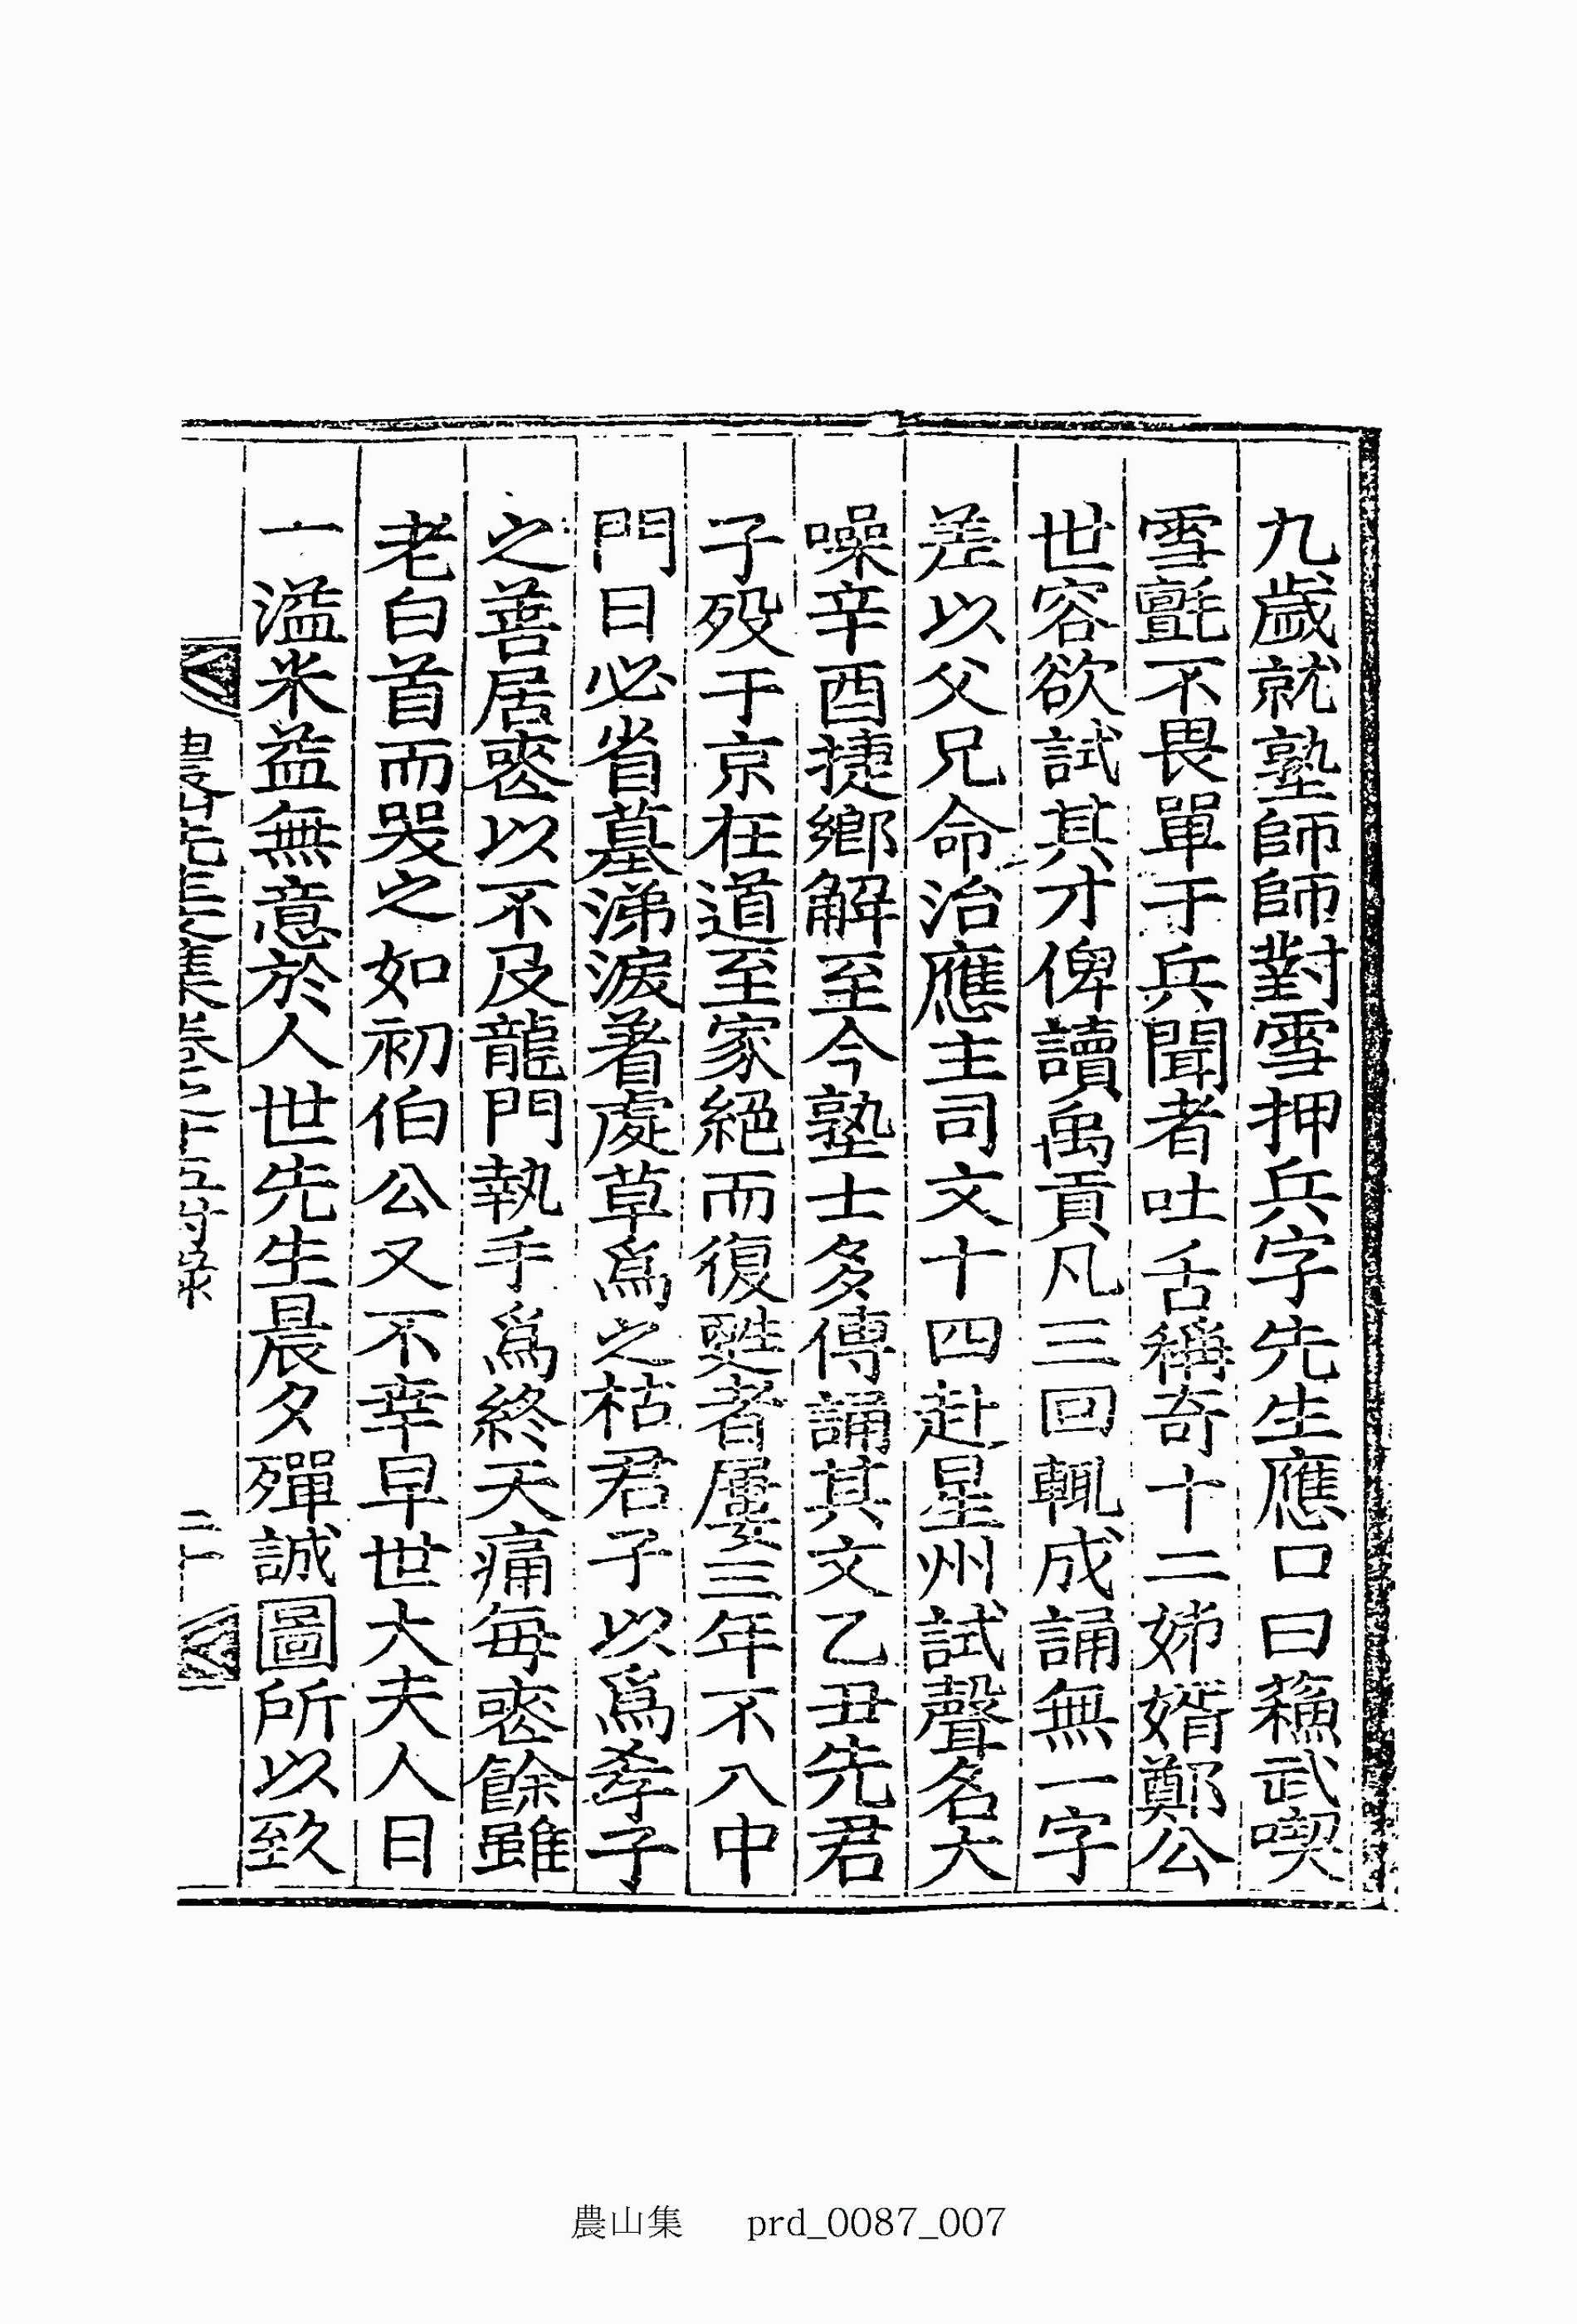 九歲就塾師師對雪押兵字先生應口曰蘓武喫
雪氈不畏單于兵聞者吐舌稱奇十二姊婿鄭公
世容欲試其才俾讀禹貢凡三回輒成誦無一字
差以父兄命治應主司文十四赴星州試聲名大
噪辛酉捷鄉解至今塾士多傳誦其文乙丑先君
子歿于京在道至家絕而復甦者屢三年不入中
門日必省墓涕淚著處草爲之枯君子以爲孝子
之善居慼以不及龍門執手爲終天痛每慼餘雖
老白首而哭之如初伯公又不幸早世大夫人日
一溢米益無意於人世先生晨夕殫誠圖所以致
農山先生文集卷之十五 附錄 二十
農山集 prd_0087_007